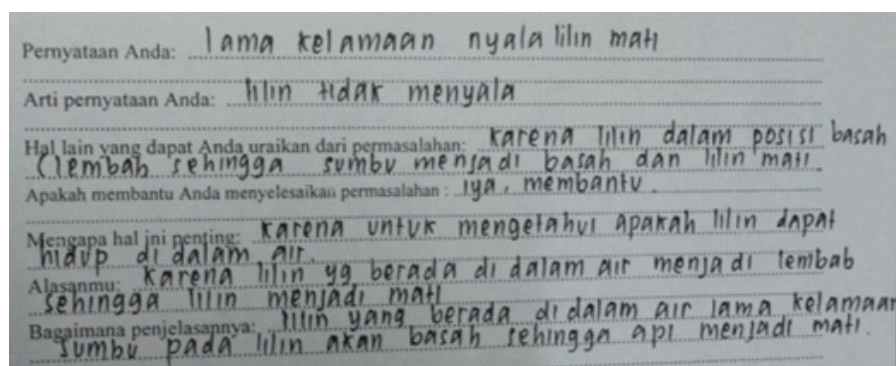 Pernyataan Anda: lama kelamaan nyala lilin mati
Arti pernyataan Anda: lilin tidak menyala
Hal lain yang dapat Anda uraikan dari permasalahan: karena lilin dalam posisi basah
(lembab sehingga sumbu menjadi basah dan lilin mati
Apakah membantu Anda menyelesaikan permasalahan : iya, membantu.
Mengapa hal ini penting: karena untuk mengetahui apakah lilin dapat
hidup di dalam air.
Alasanmu: karena lilin yg berada di dalam air menjadi lembab
sehingga lilin menjadi mati
Bagaimana penjelasannya: lilin yang berada di dalam air lama kelamaan
sumbu pada lilin akan basah sehingga api menjadi mati.